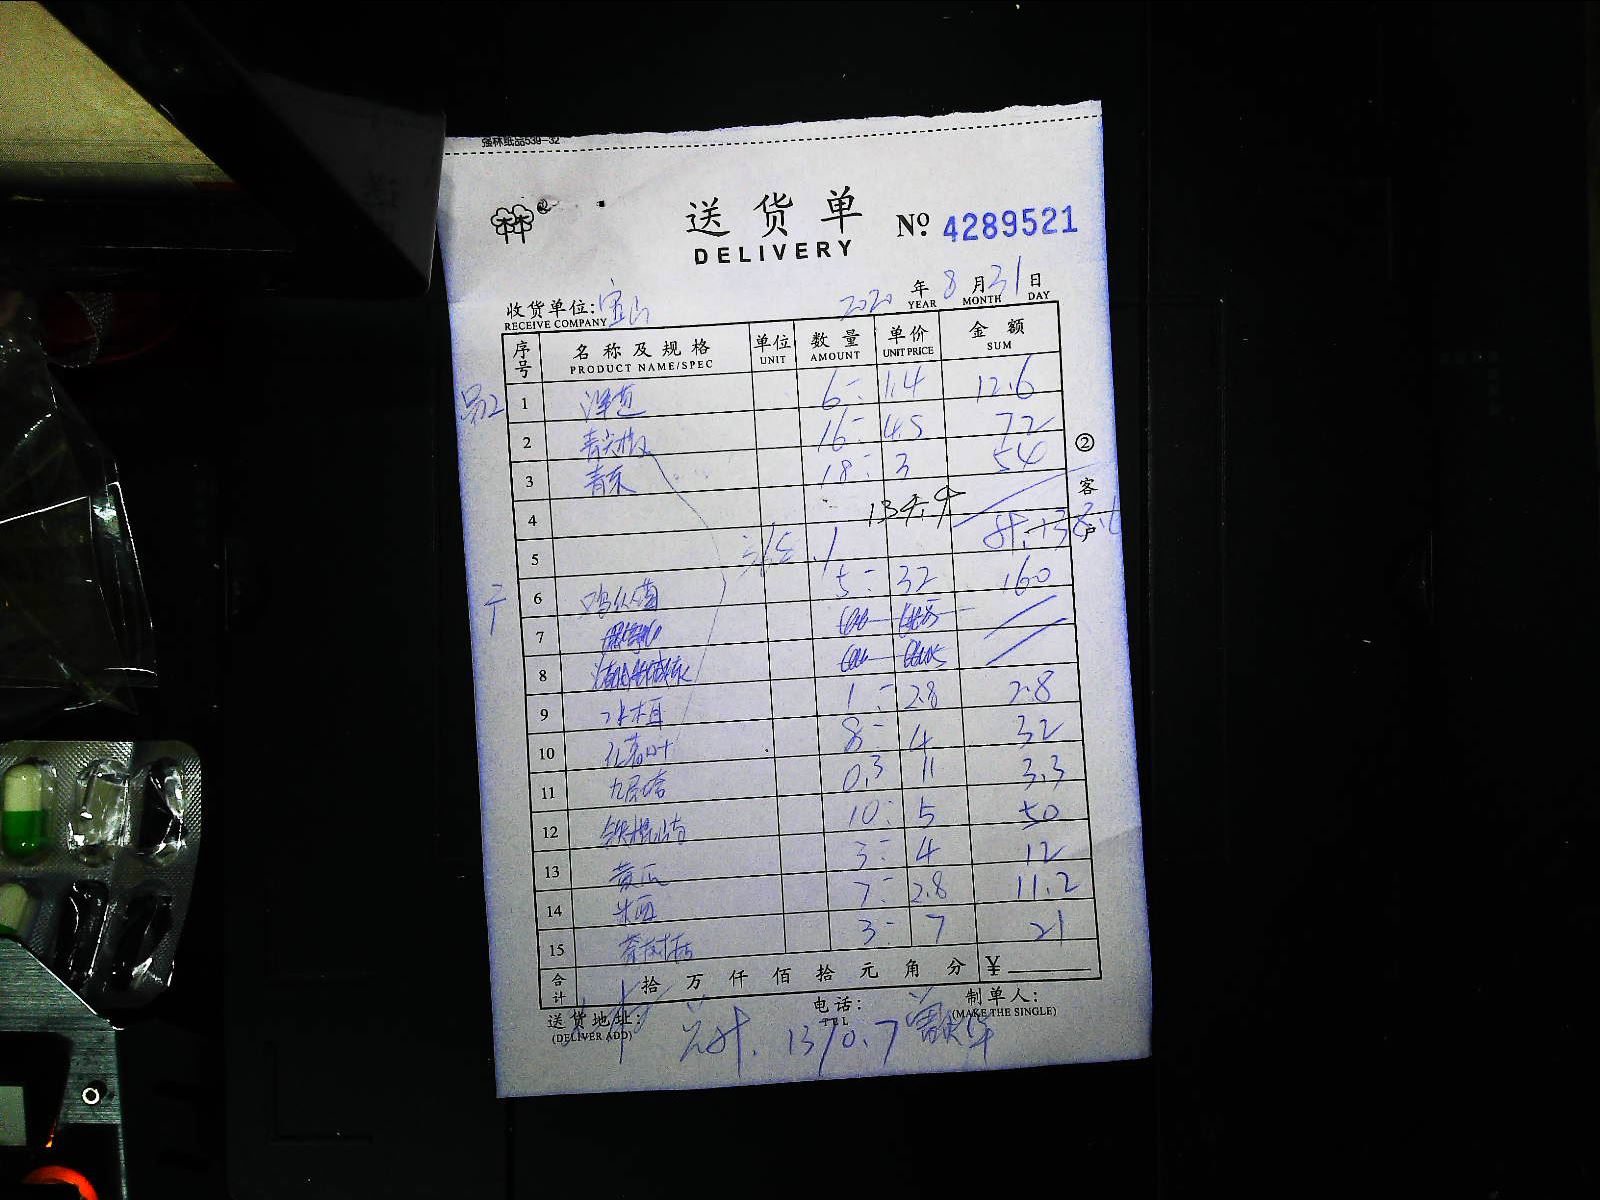 强林纸品539-32
送货单 № 4289521
DELIVERY
2020 年 8 月 31 日
YEAR MONTH DAY
收货单位: 宝山
RECEIVE COMPANY
序号 名称及规格 单位 数量 单价 金额
PRODUCT NAME/SPEC UNIT AMOUNT UNIT PRICE SUM
1 洋葱 6- 1.4 12.6
2 青尖椒 16- 4.5 72
② 客户
3 青东 18- 3 54
4 134.4
5
6 鸡纵菌 5- 32 160
7
8
9 水木耳 1- 2.8 2.8
10 8- 4 32
11 九层塔 0.3 11 3.3
12 铁棍山药 10- 5 50
13 黄瓜 3- 4 12
14 7- 2.8 11.2
15 茶树菇 3- 7 21
合计 拾 万 仟 佰 拾 元 角 分 ¥
送货地址: 电话: 制单人:
(DELIVER ADD) TEL (MAKE THE SINGLE)
1370.7